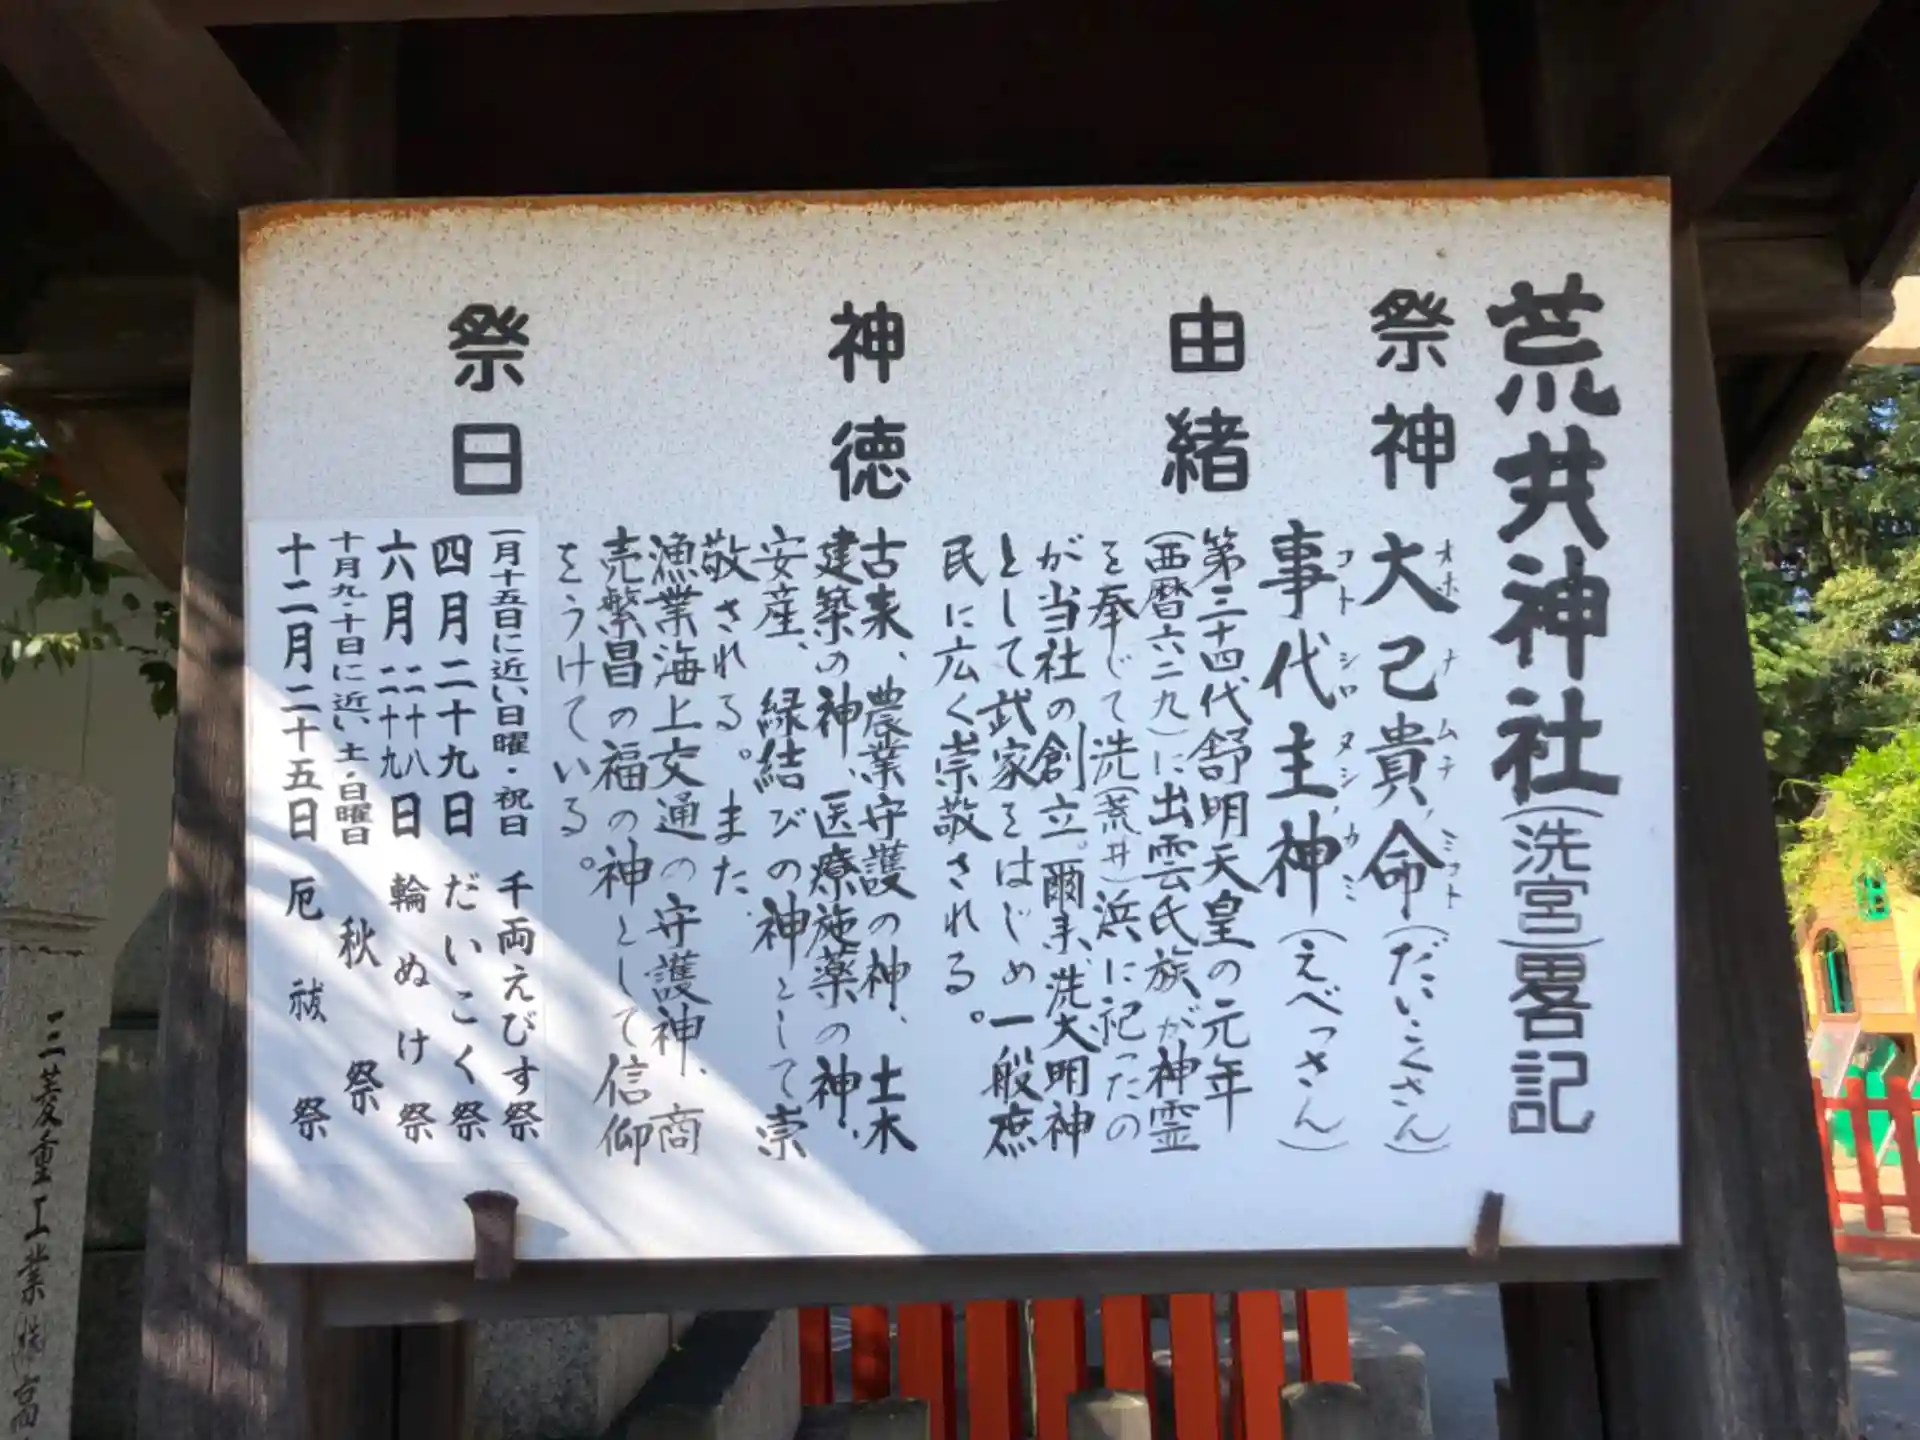 荒井神社(洗宮)畧記
祭神
大己貴命(だいこくさん)
オホ ナ ムチノ ミコト
事代主神(えべっさん)
コト シロ ヌシノ カミ
由緒
第三十四代舒明天皇の元年
(西暦六二九)に出雲氏族が神霊
を奉じて洗(荒井)浜に祀ったの
が当社の創立。爾来、洗大明神
として武家をはじめ一般庶
民に広く崇敬される。
神徳
古来、農業守護の神、土木
建築の神、医療施薬の神、
安産、縁結びの神として崇
敬される。また
漁業海上交通の守護神、商
売繁昌の福の神として信仰
をうけている。
祭日
一月十五日に近い日曜・祝日 千両えびす祭
四月二十九日 だいこく祭
六月二十八二十九日 輪ぬけ祭
十月九・十日に近い土・日曜日 秋祭
十二月二十五日 厄祓祭
三菱重工業(株)高